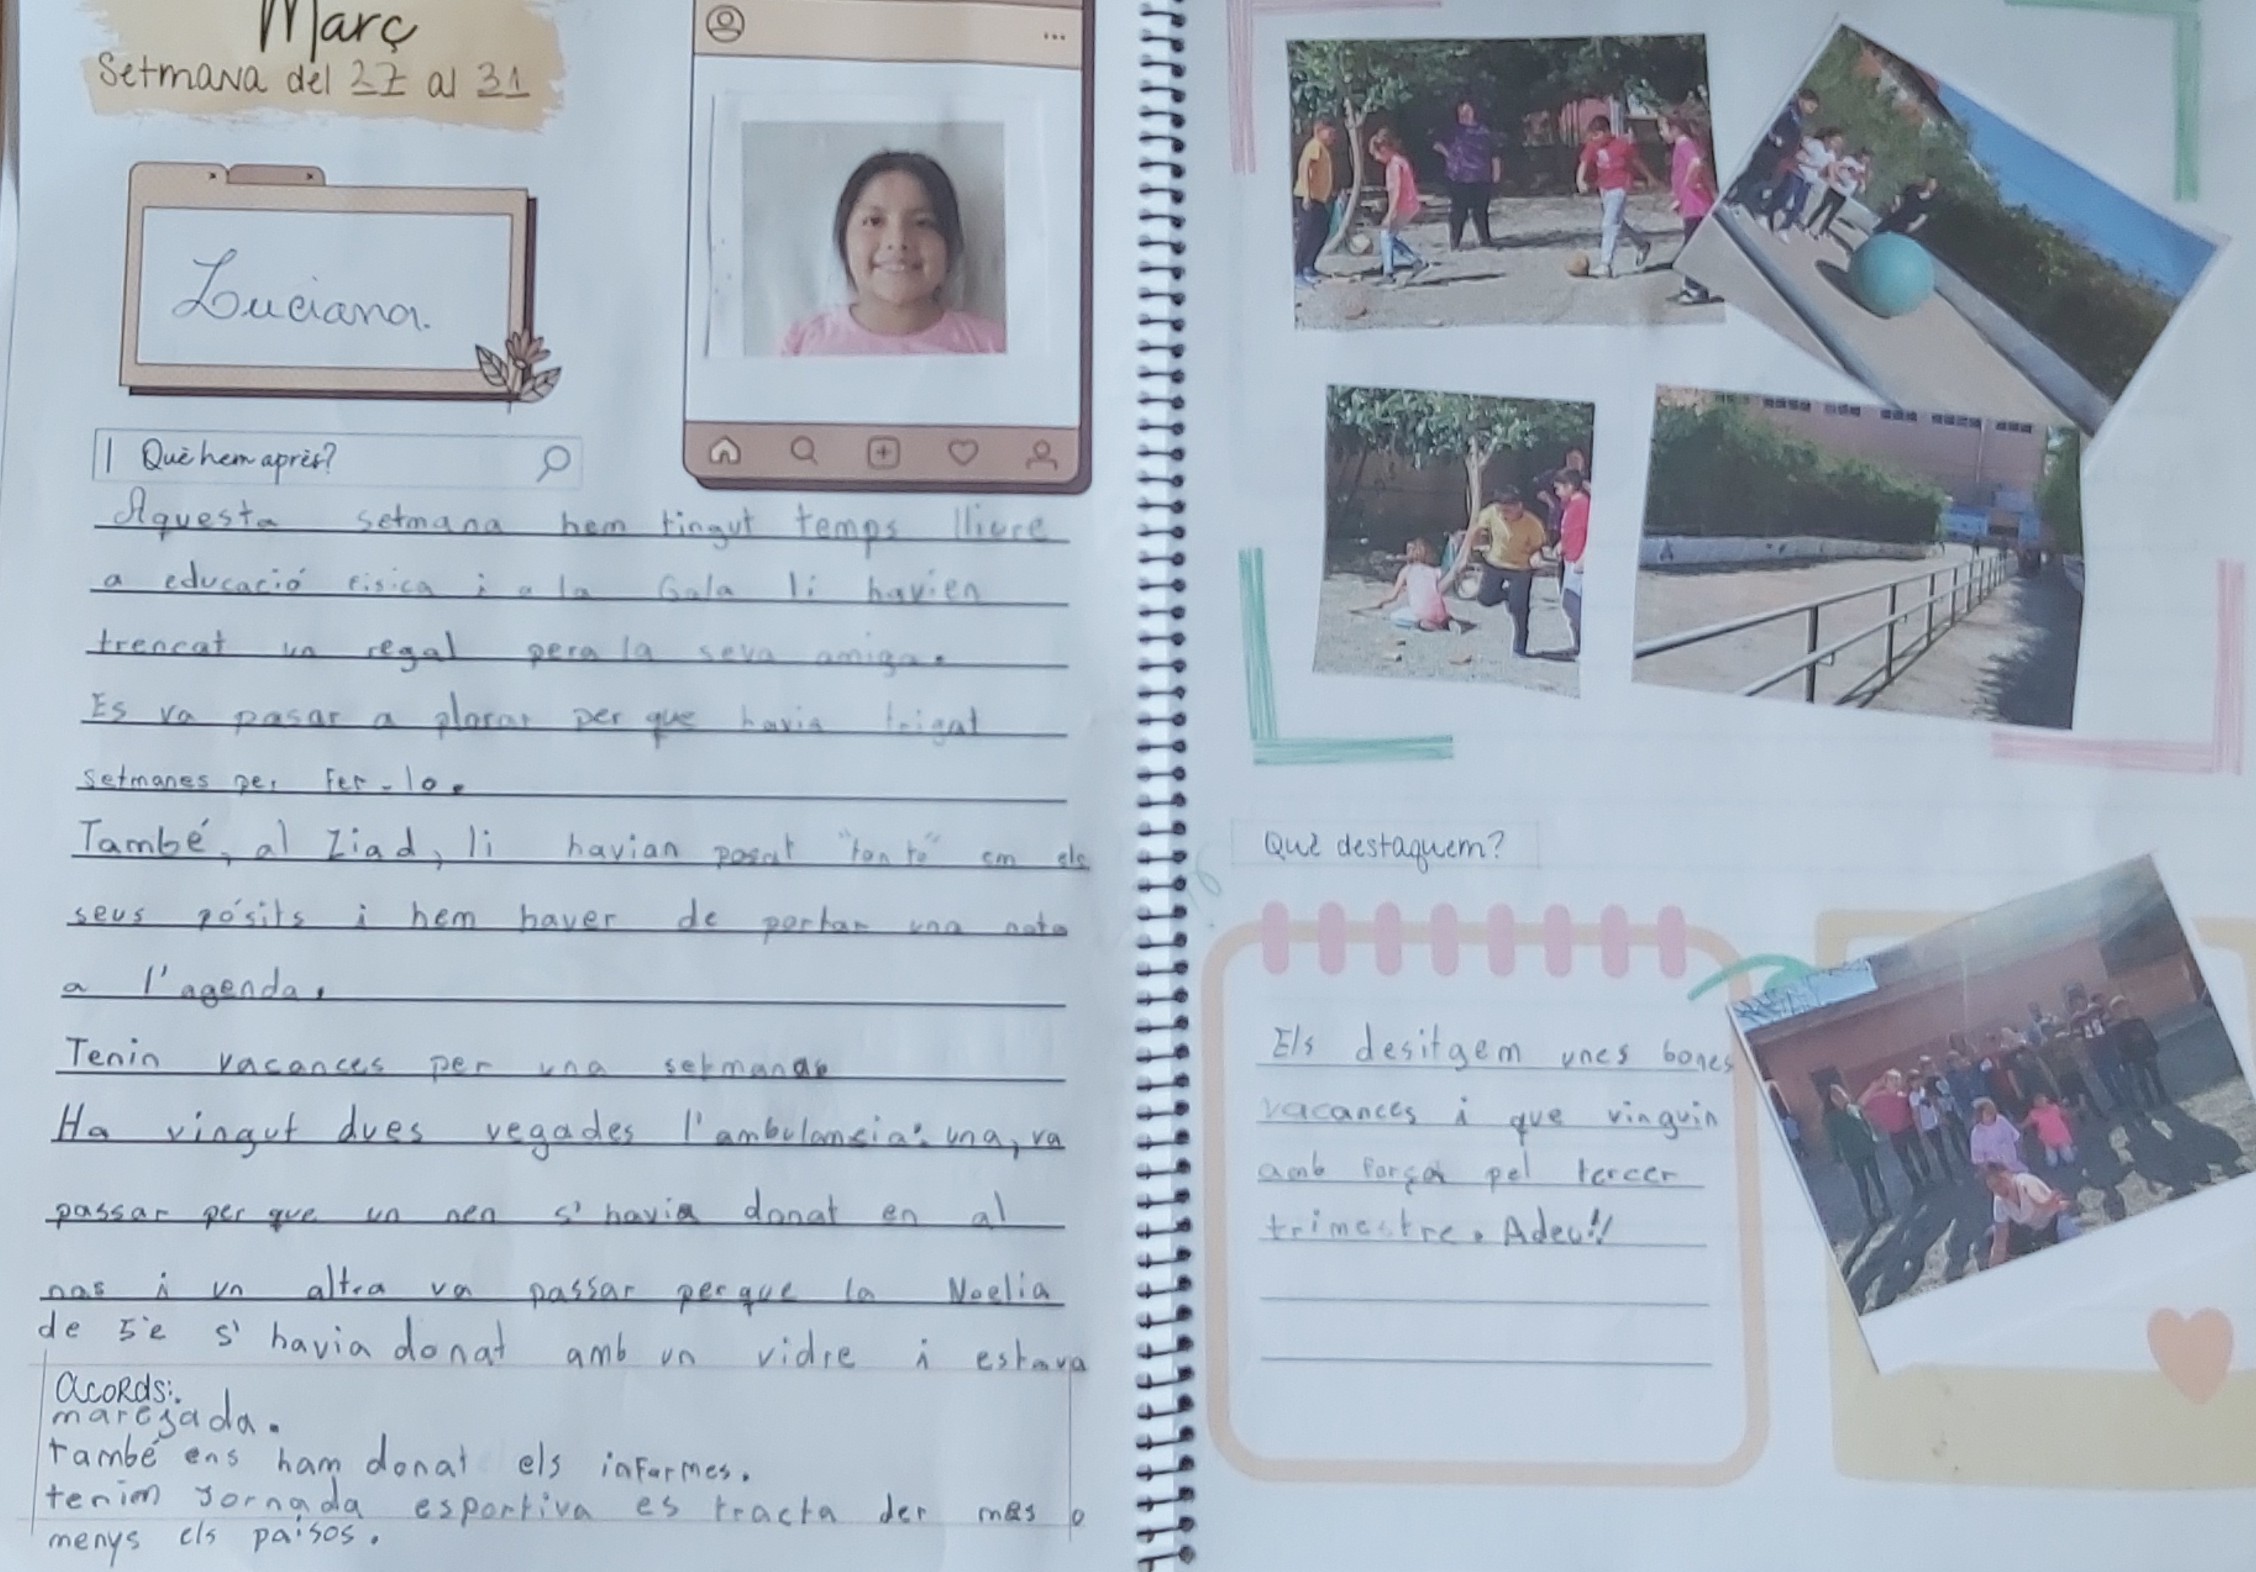 Març
Setmana del 27 al 31
Luciana.
Què hem après?
Aquesta setmana hem tingut temps lliure
a educació fisica i a la Gala li havien
trencat un regal pera la seva amiga.
Es va pasar a plorar per que havia trigat
setmanes per fer-lo.
També, al Ziad, li havian posat "tonto" em els
seus pósits i hem haver de portar una nota
a l'agenda.
Tenin vacances per una setmana
Ha vingut dues vegades l'ambulancia: una, va
passar per que un nen s'havia donat en al
nas i un altra va passar perque la Noelia
de 5è s'havia donat amb un vidre i estava
Acords:
maresada.
també ens ham donat els informes.
tenim Jornada esportiva es tracta der mes o
menys els països.
Què destaquem?
Els desitgem unes bones
vacances i que vinguin
amb força pel tercer
trimestre. Adeu!!